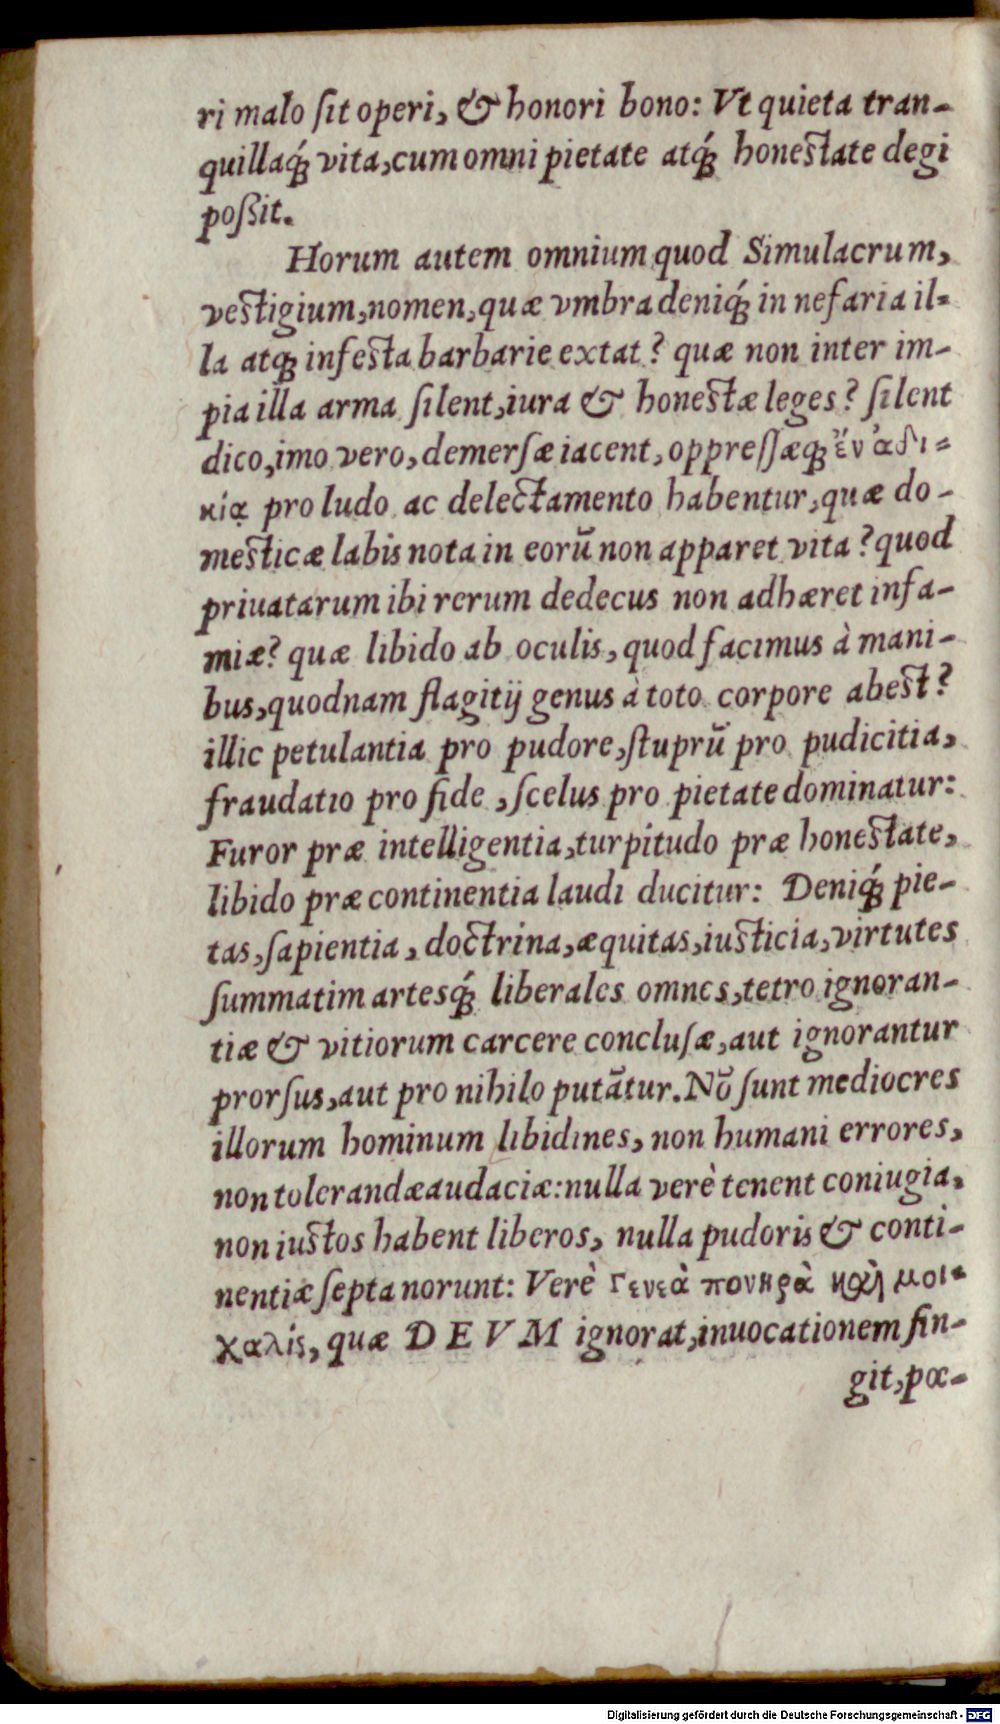 ri malo ſit operi, & honori bono: Vt quieta tran-
quillaq́; vita, cum omni pietate atq́; honeſtate degi
poßit.
Horum autem omnium quod Simulacrum,
veſtigium, nomen, quæ vmbra deniq́; in nefaria il-
la atq; infeſta barbarie extat? quæ non inter im-
pia illa arma ſilent, iura & honeſtæ leges? ſilent
dico, imo vero, demerſæ iacent, oppreſſæq; ἔν ἀδι-
κίᾳ pro ludo ac delectamento habentur, quæ do-
meſticæ labis nota in eorũ non apparet vita? quod
priuatarum ibi rerum dedecus non adhæret infa-
miæ? quæ libido ab oculis, quod facimus à mani-
bus, quodnam flagitij genus à toto corpore abeſt?
illic petulantia pro pudore, ſtuprũ pro pudicitia,
fraudatio pro fide, ſcelus pro pietate dominatur:
Furor præ intelligentia, turpitudo præ honeſtate,
libido præ continentia laudi ducitur: Deniq́; pie-
tas, ſapientia, doctrina, æquitas, iuſticia, virtutes
ſummatim artesq́; liberales omnes, tetro ignoran-
tiæ & vitiorum carcere concluſæ, aut ignorantur
prorſus, aut pro nihilo putãtur. Nõ ſunt mediocres
illorum hominum libidines, non humani errores,
non tolerandæ audaciæ: nulla verè tenent coniugia,
non iuſtos habent liberos, nulla pudoris & conti-
nentiæ ſepta norunt: Verè Γενεὰ πονηρὰ καὶ μοι-
χαλίς, quæ DEVM ignorat, inuocationem fin-
git, pœ-
Digitalisierung gefördert durch die Deutsche Forschungsgemeinschaft - DFG